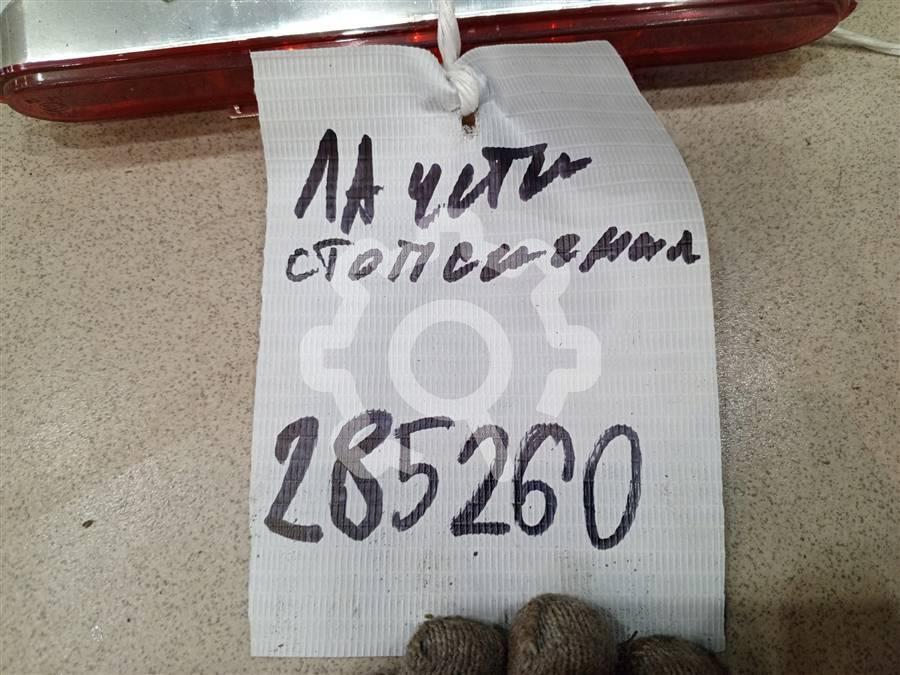 ЛА части
стопсигнал
285260